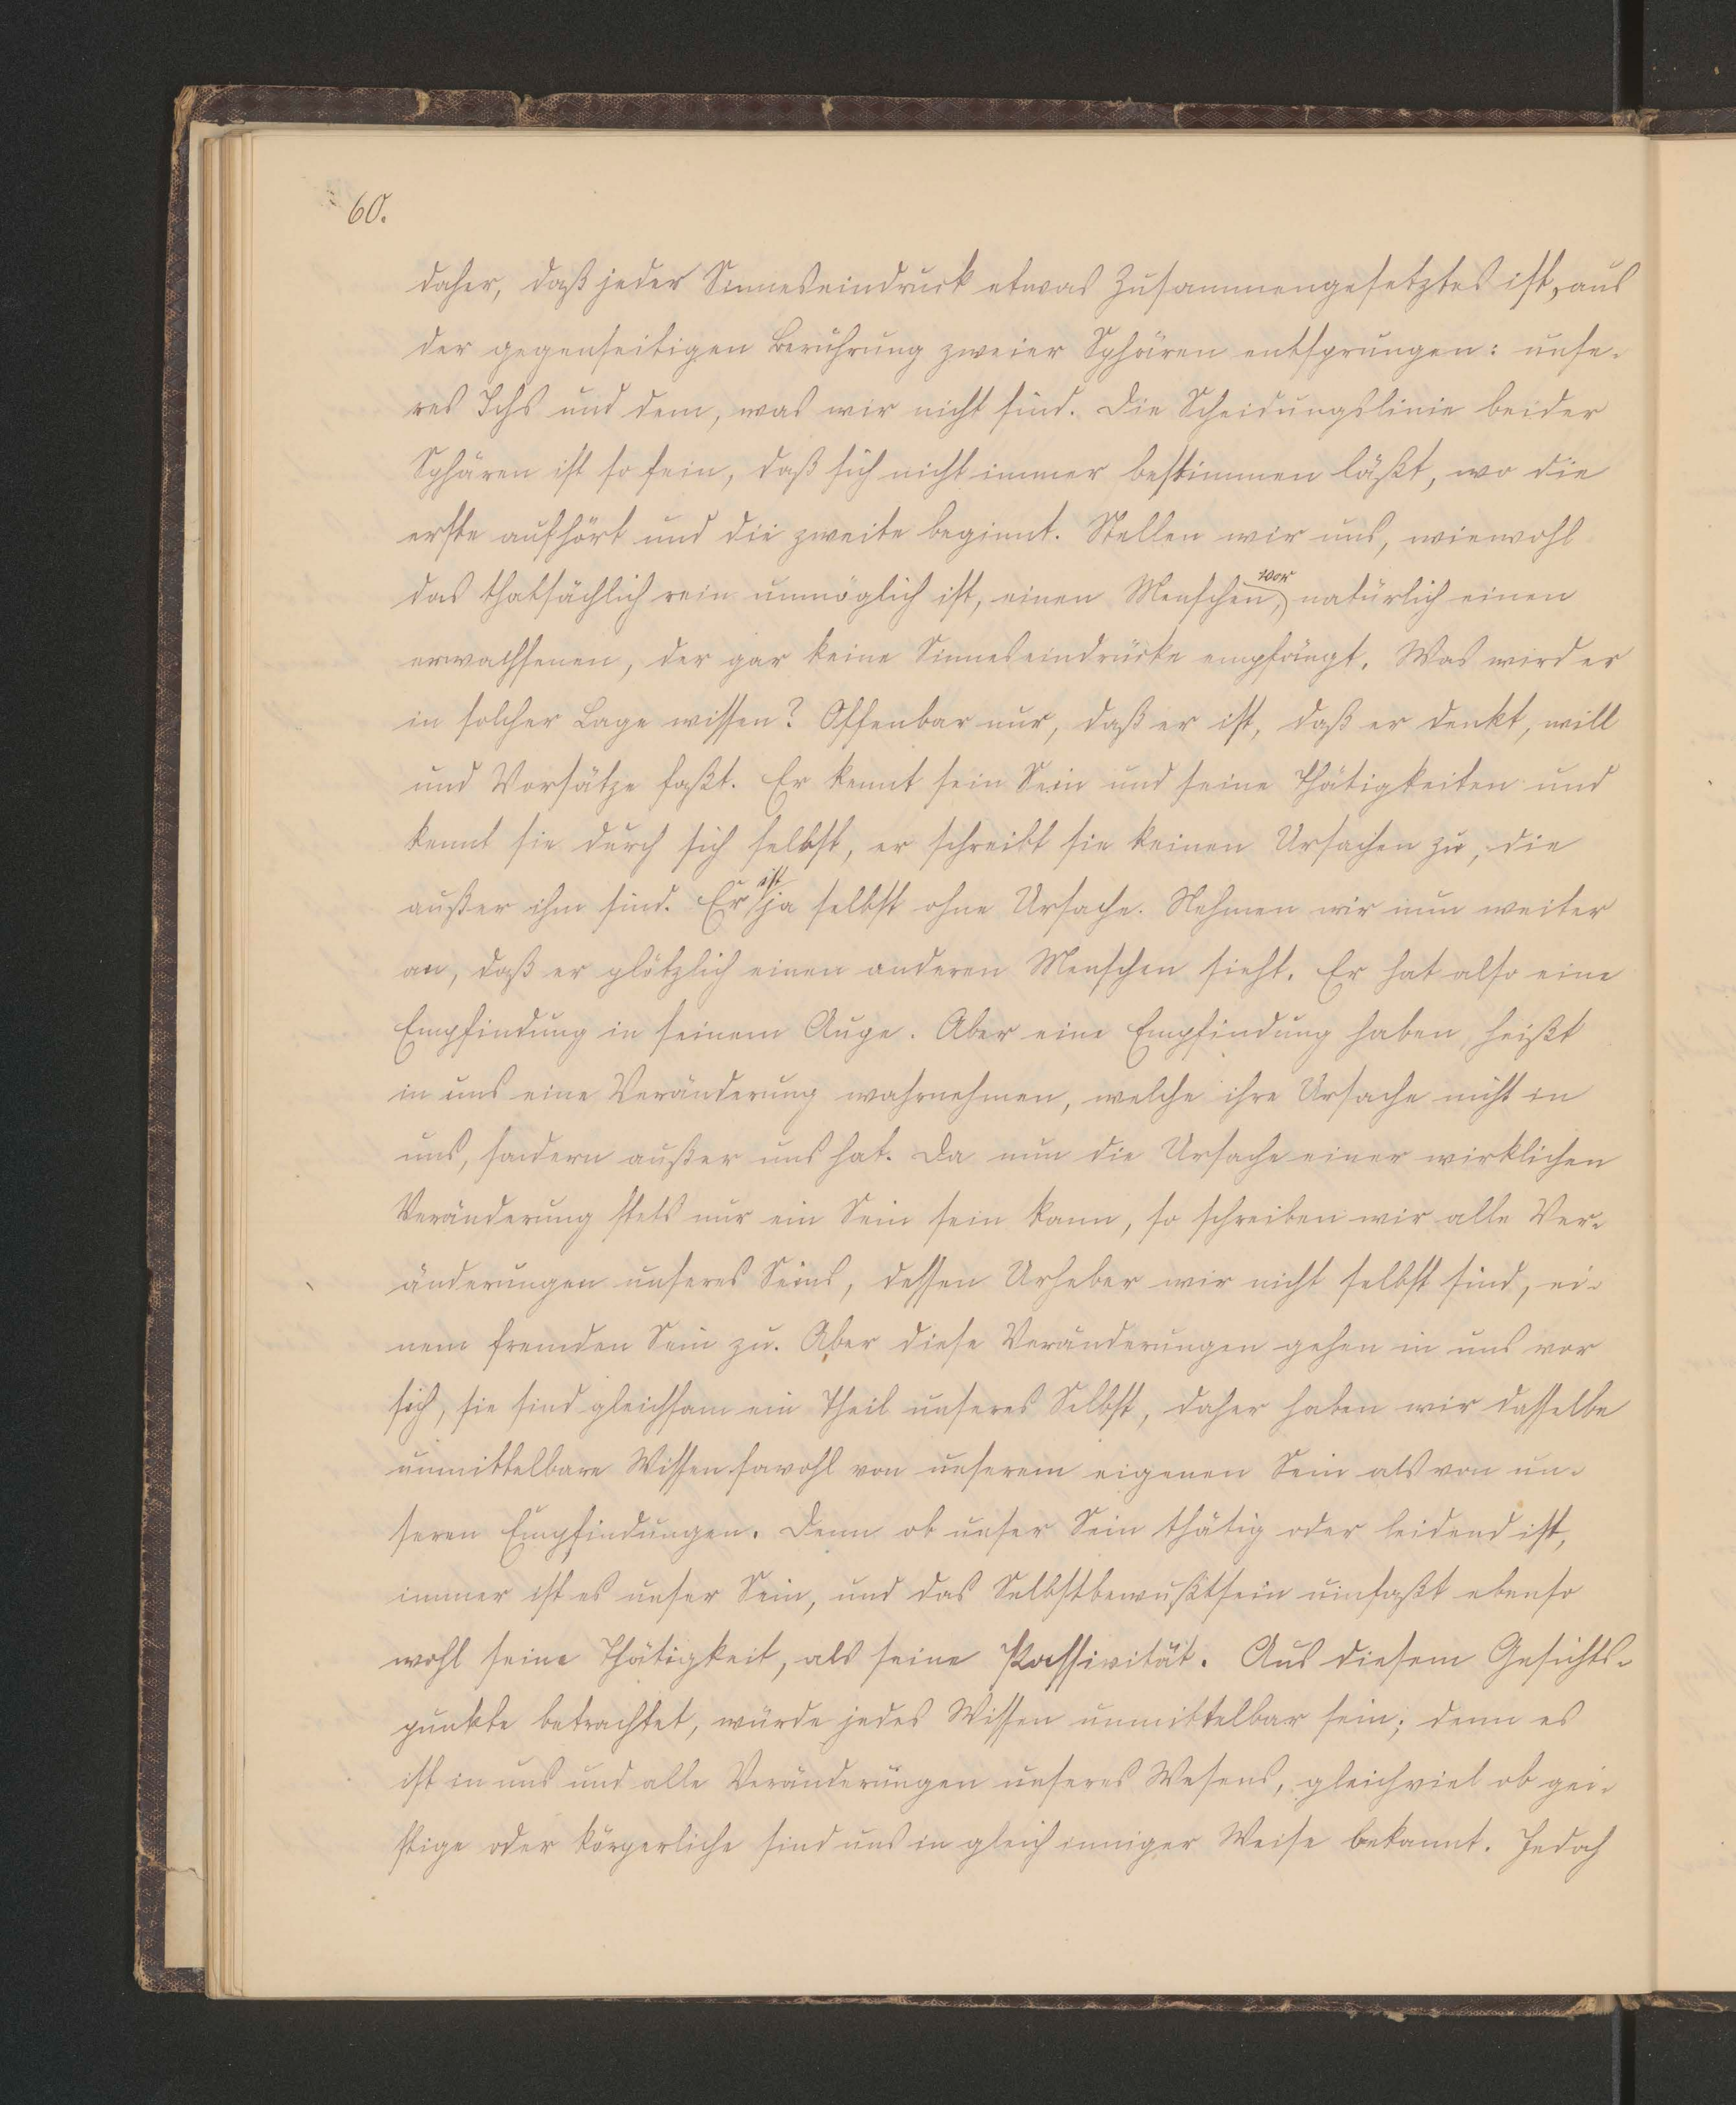 60.
daher, daß jeder Sinneseindruck etwas Zusammengesetztes ist, aus
der gegenseitigen Berührung zweier Sphären entsprungen: unse-
res Ichs und dem, was wir nicht sind. Die Scheidungslinie beider
Sphären ist so fein, daß sich nicht immer bestimmen läßt, wo die
erste aufhört und die zweite beginnt. Stellen wir uns, wiewohl
das thatsächlich rein unmöglich ist, einen Menschen vor, natürlich einen
erwachsenen, der gar keine Sinneseindrücke empfängt. Was wird er
in solcher Lage wissen? Offenbar nur, daß er ist, daß er denkt, will
und Vorsätze faßt. Er kennt sein Sein und seine Thätigkeiten und
kennt sie durch sich selbst, er schreibt sie keinen Ursachen zu, die
außer ihm sind. Er ist ja selbst ohne Ursache. Nehmen wir nun weiter
an, daß er plötzlich einen anderen Menschen sieht. Er hat also eine
Empfindung in seinem Auge. Aber eine Empfindung haben, heißt
in uns eine Veränderung wahrnehmen, welche ihre Ursache nicht in
uns, sondern außer uns hat. Da nun die Ursache einer wirklichen
Veränderung stets nur ein Sein sein kann, so schreiben wir alle Ver-
änderungen unseres Seins, dessen Urheber wir nicht selbst sind, ei-
nem fremden Sein zu. Aber diese Veränderungen gehen in uns vor
sich, sie sind gleichsam ein Theil unseres Selbst, daher haben wir dasselbe
unmittelbare Wissen sowohl von unserem eigenen Sein als von un-
seren Empfindungen. Denn ob unser Sein thätig oder leidend ist,
immer ist es unser Sein, und das Selbstbewußtsein umfaßt ebenso
wohl seine Thätigkeit, als seine Passivität. Aus diesem Gesichts-
punkte betrachtet, würde jedes Wissen unmittelbar sein; denn es
ist in uns und alle Veränderungen unseres Wesens, gleichviel ob gei-
stige oder körperliche sind uns in gleich inniger Weise bekannt. Jedoch